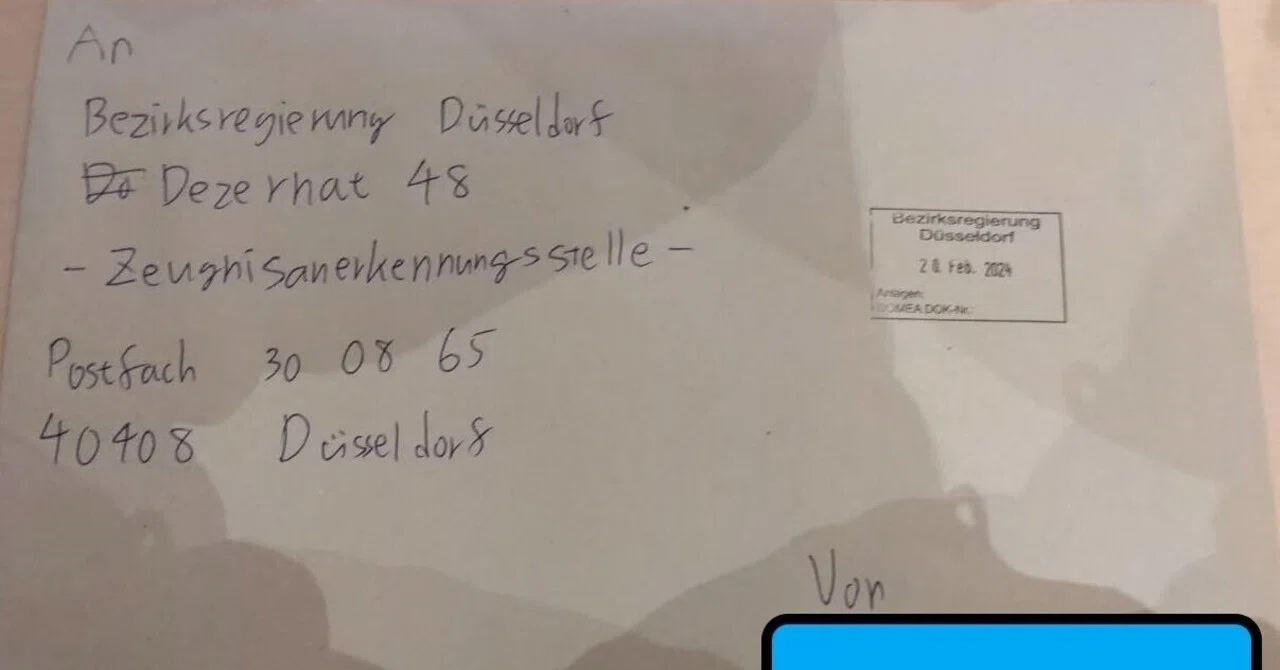 An
Bezirksregierung Düsseldorf
Dezernat 48
- Zeugnisanerkennungsstelle -
Postfach 30 08 65
40408 Düsseldorf
Bezirksregierung
Düsseldorf
Feb. 2024
Anlagen:
DOMEA DOK-Nr.:
Von